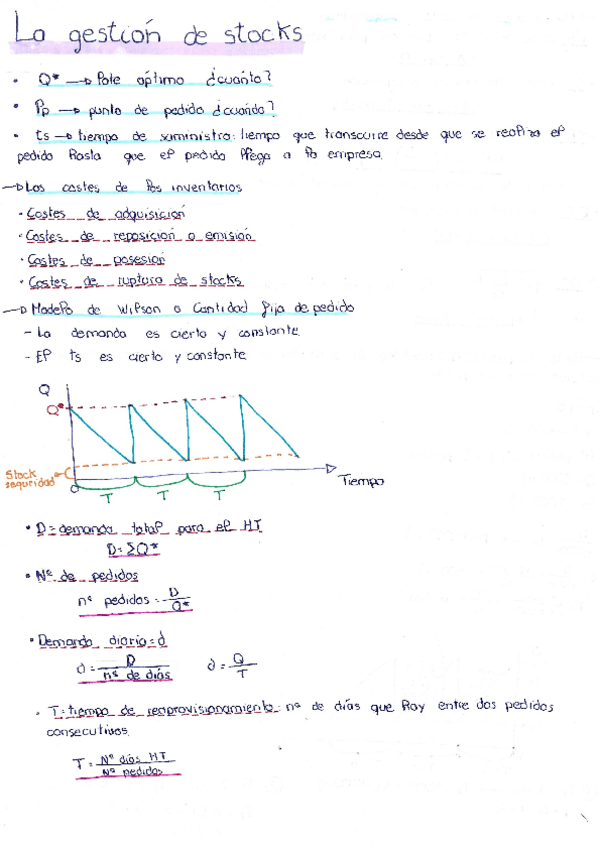 La gestión de stocks
• Q* → lote óptimo ¿cuánto?
• Pp → punto de pedido ¿cuándo?
• ts → tiempo de suministro: tiempo que transcurre desde que se realiza el
pedido hasta que el pedido llega a la empresa.
→ Los costes de los inventarios
• Costes de adquisición
• Costes de reposición o emisión
• Costes de posesión
• Costes de ruptura de stocks
→ Modelo de Wilson o Cantidad fija de pedido
- La demanda es cierta y constante
- El ts es cierto y constante
Q
Q*
Stock
seguridad
0
T T T
Tiempo
• D = demanda total para el HT
D = ΣQ*
• Nº de pedidos
nº pedidos = D / Q*
• Demanda diaria = d
d = D / nº de días d = Q / T
• T = tiempo de reaprovisionamiento: nº de días que hay entre dos pedidos
consecutivos.
T = Nº días HT / Nº pedidos